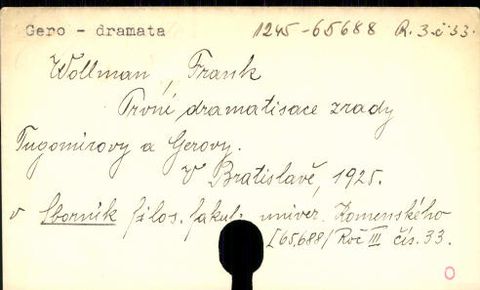 Gero - dramata 1245-65688 R. 3 č 33.
Wollman, Frank
První dramatisace zrady
Tugomírovy a Gerovy.
V Bratislavě, 1925.
v Sborník filos. fakul. univer. Komenského
[65688/ Roč III čís. 33.